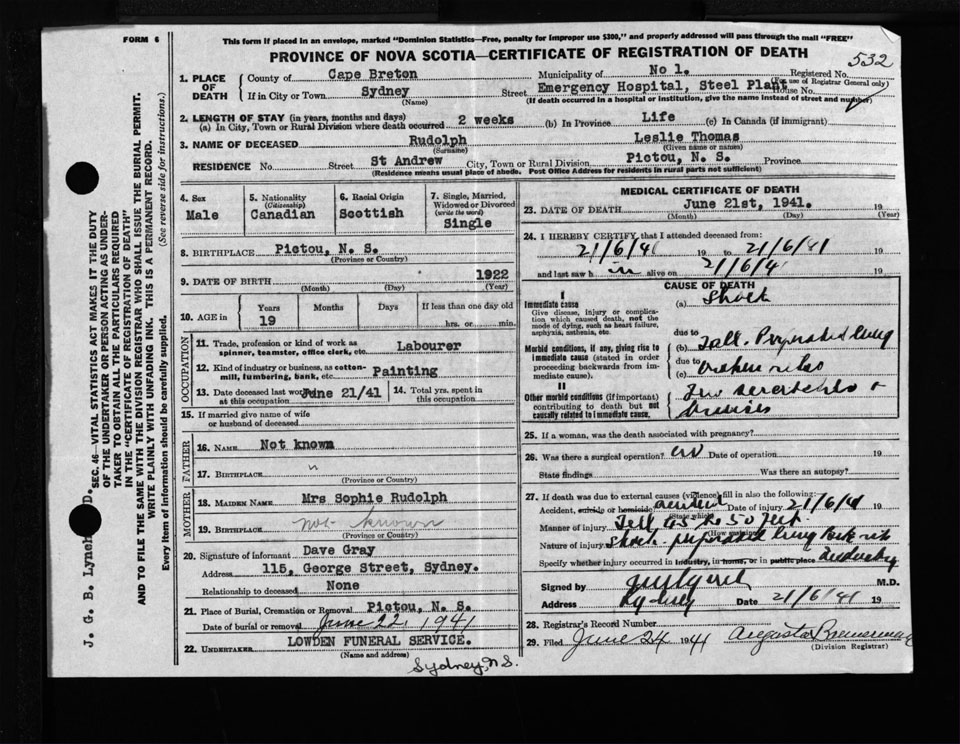 FORM 6
This form if placed in an envelope, marked "Dominion Statistics—Free, penalty for improper use $300," and properly addressed will pass through the mail "FREE"
PROVINCE OF NOVA SCOTIA—CERTIFICATE OF REGISTRATION OF DEATH
532
1. PLACE OF DEATH
County of Cape Breton Municipality of No 1. Registered No.
(For use of Registrar General only)
If in City or Town Sydney Street Emergency Hospital, Steel Plant House No.
(Name) (If death occurred in a hospital or institution, give the name instead of street and number)
2. LENGTH OF STAY (in years, months and days)
(a) In City, Town or Rural Division where death occurred 2 weeks (b) In Province Life (c) In Canada (if immigrant)
3. NAME OF DECEASED Rudolph Leslie Thomas
(Surname) (Given name or names)
RESIDENCE No. Street St Andrew City, Town or Rural Division Pictou, N. S. Province
(Residence means usual place of abode. Post Office Address for residents in rural parts not sufficient)
4. Sex
Male
5. Nationality
(Citizenship)
Canadian
6. Racial Origin
Scottish
7. Single, Married, Widowed or Divorced
(write the word)
Single
8. BIRTHPLACE Pictou, N. S.
(Province or Country)
9. DATE OF BIRTH 1922
(Month) (Day) (Year)
10. AGE in Years Months Days If less than one day old
19 hrs. or min.
OCCUPATION
11. Trade, profession or kind of work as Labourer
spinner, teamster, office clerk, etc.
12. Kind of industry or business, as cotton-
mill, lumbering, bank, etc. Painting
13. Date deceased last worked June 21/41
at this occupation
14. Total yrs. spent in this occupation
15. If married give name of wife
or husband of deceased
FATHER
16. NAME Not known
17. BIRTHPLACE "
(Province or Country)
MOTHER
18. MAIDEN NAME Mrs Sophie Rudolph
19. BIRTHPLACE not known
(Province or Country)
20. Signature of informant Dave Gray
Address 115, George Street, Sydney.
Relationship to deceased None
21. Place of Burial, Cremation or Removal Pictou, N. S.
Date of burial or removal June 22, 1941
22. UNDERTAKER LOWDEN FUNERAL SERVICE.
(Name and address)
Sydney, N S.
MEDICAL CERTIFICATE OF DEATH
23. DATE OF DEATH June 21st, 1941. 19
(Month) (Day) (Year)
24. I HEREBY CERTIFY, that I attended deceased from:
21/6/41 19 to 21/6/41 19
and last saw h im alive on 21/6/41 19
CAUSE OF DEATH
I
Immediate cause (a) Shock
Give disease, injury or complication which caused death, not the mode of dying, such as heart failure, asphyxia, asthenia, etc.
due to
Morbid conditions, if any, giving rise to immediate cause (stated in order proceeding backwards from immediate cause).
(b) Fall. Perforated lung
due to
(c) broken ribs
II
Other morbid conditions (if important) contributing to death but not causally related to immediate cause.
bruises
25. If a woman, was the death associated with pregnancy?
26. Was there a surgical operation? no Date of operation 19
State findings Was there an autopsy?
27. If death was due to external causes (violence) fill in also the following:
Accident, suicide or homicide accident Date of injury 21/6/41
(State which)
Manner of injury Fell 45 to 50 feet
(How sustained)
Nature of injury Shock. perforated lung rib
Specify whether injury occurred in industry, in home, or in public place industry
Signed by M.D.
Address Sydney Date 21/6/41 19
28. Registrar's Record Number
29. Filed June 24 1941 Augusta
(Division Registrar)
J. G. B. Lynch
SEC. 46—VITAL STATISTICS ACT MAKES IT THE DUTY
OF THE UNDERTAKER OR PERSON ACTING AS UNDER-
TAKER TO OBTAIN ALL THE PARTICULARS REQUIRED
IN THE "CERTIFICATE OF REGISTRATION OF DEATH"
AND TO FILE THE SAME WITH THE DIVISION REGISTRAR WHO SHALL ISSUE THE BURIAL PERMIT.
WRITE PLAINLY WITH UNFADING INK. THIS IS A PERMANENT RECORD.
Every item of information should be carefully supplied. (See reverse side for instructions.)